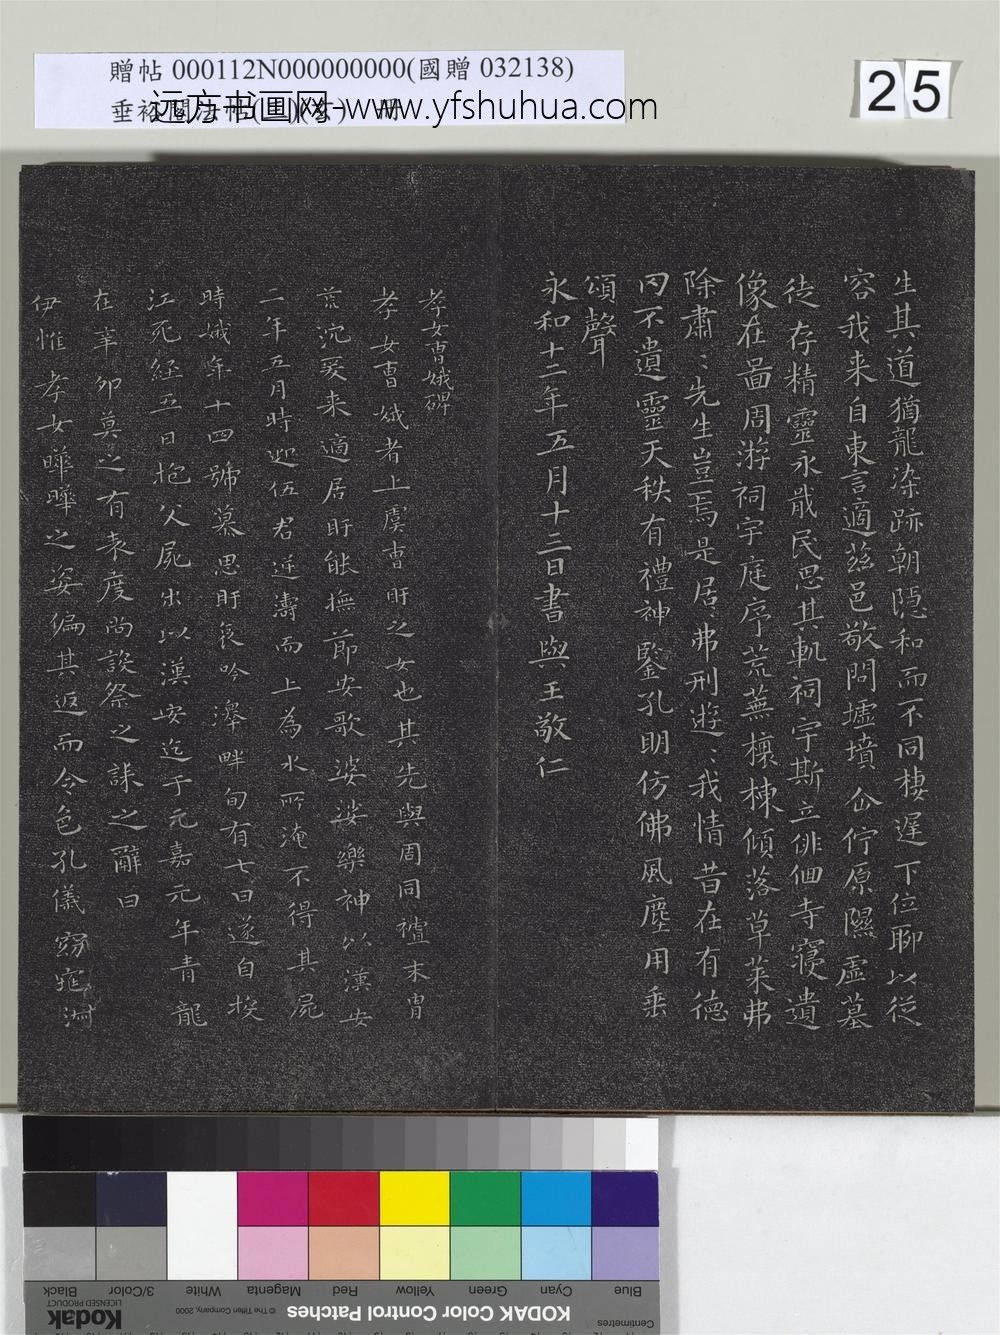 贈帖 000112N000000000(國贈 032138)
远方书画网 www.yfshuhua.com
25
生其道猶龍染跡朝隱和而不同棲遲下位聊以從
容我来自東言適茲邑敬問墟墳企佇原隰虛墓
徒存精靈永戢民思其軌祠宇斯立徘徊寺寢遺
像在圖周游祠宇庭序荒蕪榱棟傾落草萊弗
除肅〻先生豈焉是居〻弗刑遊〻我情昔在有德
罔不遺靈天秩有禮神鑒孔明仿佛風塵用垂
頌聲
永和十二年五月十三日書與王敬仁
孝女曹娥碑
孝女曹娥者上虞曹盱之女也其先與周同祖末胄
荒沉爰来適居盱能撫節安歌婆娑樂神以漢安
二年五月時迎伍君逆濤而上為水所淹不得其屍
時娥年十四號慕思盱哀吟澤畔旬有七日遂自投
江死經五日抱父屍出以漢安迄于元嘉元年青龍
在辛卯莫之有表度尚設祭之誄之辭曰
伊惟孝女曄曄之姿偏其返而令色孔儀窈窕淑
KODAK Color Control Patches
© The Tiffen Company, 2000
Kodak
LICENSED PRODUCT
Centimetres
Blue
Cyan
Green
Yellow
Red
Magenta
White
3/Color
Black